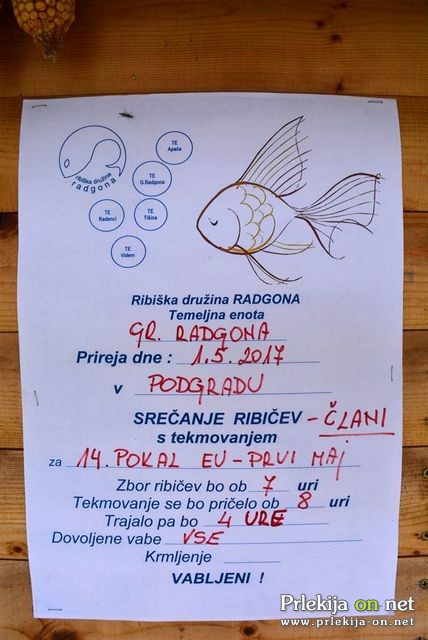 ribiška družina
radgona
TE
Apače
TE
G.Radgona
TE
Radenci
TE
Tišina
TE
Videm
Ribiška družina RADGONA
Temeljna enota
GR. RADGONA
Prireja dne : 1.5.2017
v PODGRADU
SREČANJE RIBIČEV - ČLANI
s tekmovanjem
za 14. POKAL EU - PRVI MAJ
Zbor ribičev bo ob 7 uri
Tekmovanje se bo pričelo ob 8 uri
Trajalo pa bo 4 URE
Dovoljene vabe VSE
Krmljenje
VABLJENI !
Prlekija on net
www.prlekija-on.net